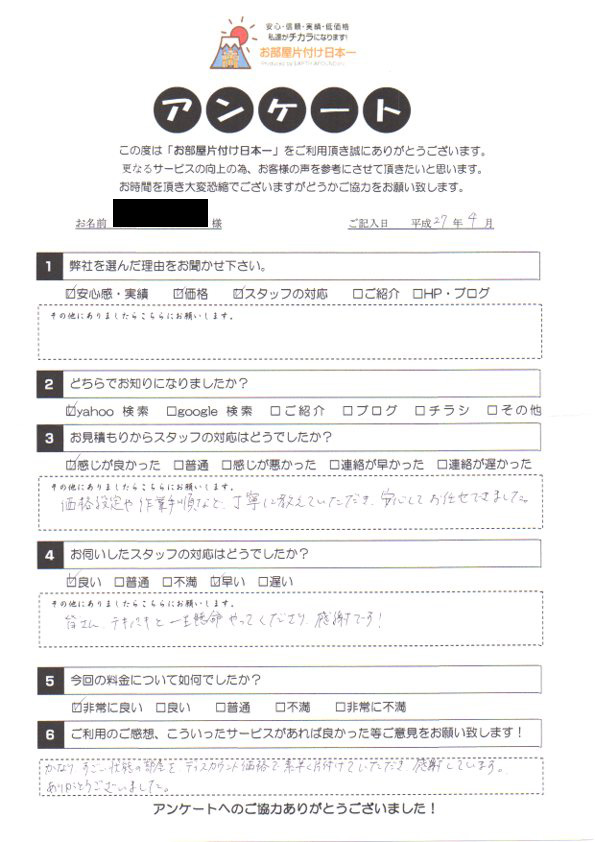 安心・信頼・実績・低価格
私達がチカラになります!
お部屋片付け日本一
アンケート
この度は「お部屋片付け日本一」をご利用頂き誠にありがとうございます。
更なるサービスの向上の為、お客様の声を参考にさせて頂きたいと思います。
お時間を頂き大変恐縮でございますがどうかご協力をお願い致します。
お名前 様 ご記入日 平成27年4月
1 弊社を選んだ理由をお聞かせ下さい。
☑安心感・実績 ☑価格 ☑スタッフの対応 □ご紹介 □HP・ブログ
その他にありましたらこちらにお願いします。
2 どちらでお知りになりましたか?
☑yahoo 検索 □google 検索 □ご紹介 □ブログ □チラシ □その他
3 お見積もりからスタッフの対応はどうでしたか?
☑感じが良かった □普通 □感じが悪かった □連絡が早かった □連絡が遅かった
その他にありましたらこちらにお願いします。
価格設定や作業手順など、丁寧に教えていただき、安心してお任せできました。
4 お伺いしたスタッフの対応はどうでしたか?
☑良い □普通 □不満 ☑早い □遅い
その他にありましたらこちらにお願いします。
皆さん、テキパキと一生懸命やってくださり、感謝です!
5 今回の料金について如何でしたか?
☑非常に良い □良い □普通 □不満 □非常に不満
6 ご利用のご感想、こういったサービスがあれば良かった等ご意見をお願い致します!
かなりすごい状態の部屋をディスカウント価格で素早く片付けていただき、感謝しています。
ありがとうございました。
アンケートへのご協力ありがとうございました!